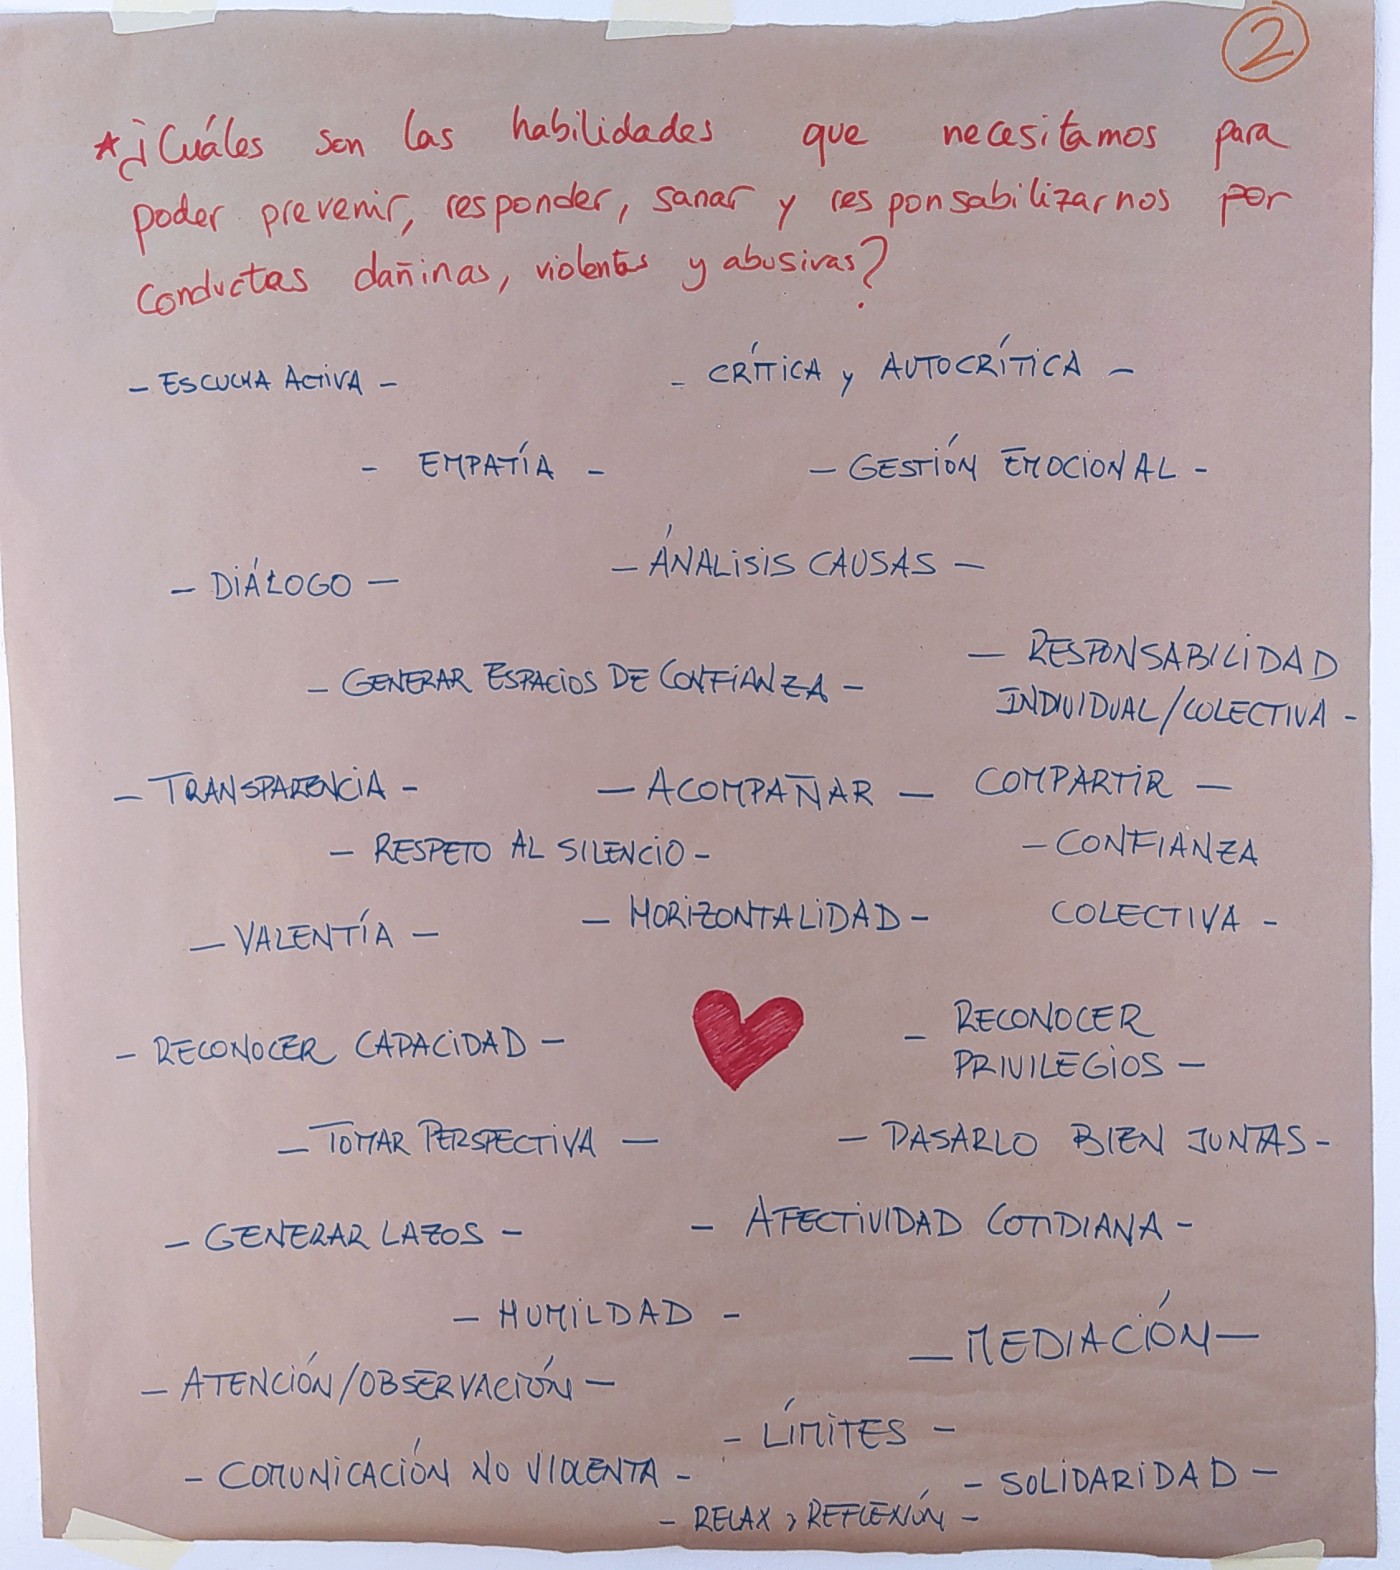 2
*¿Cuáles son las habilidades que necesitamos para
poder prevenir, responder, sanar y responsabilizarnos por
conductas dañinas, violentas y abusivas?
- ESCUCHA ACTIVA -
- CRÍTICA y AUTOCRÍTICA -
- EMPATÍA -
- GESTIÓN EMOCIONAL -
- DIÁLOGO -
- ÁNALISIS CAUSAS -
- GENERAR ESPACIOS DE CONFIANZA -
- RESPONSABILIDAD
INDIVIDUAL/COLECTIVA -
- TRANSPARENCIA -
- ACOMPAÑAR - COMPARTIR -
- RESPETO AL SILENCIO -
- CONFIANZA
COLECTIVA -
- VALENTÍA -
- HORIZONTALIDAD -
- RECONOCER CAPACIDAD -
- RECONOCER
PRIVILEGIOS -
- TOMAR PERSPECTIVA -
- PASARLO BIEN JUNTAS -
- GENERAR LAZOS -
- AFECTIVIDAD COTIDIANA -
- HUMILDAD -
- MEDIACIÓN -
- ATENCIÓN/OBSERVACIÓN -
- LÍMITES -
- COMUNICACIÓN NO VIOLENTA -
- SOLIDARIDAD -
- RELAX y REFLEXIÓN -